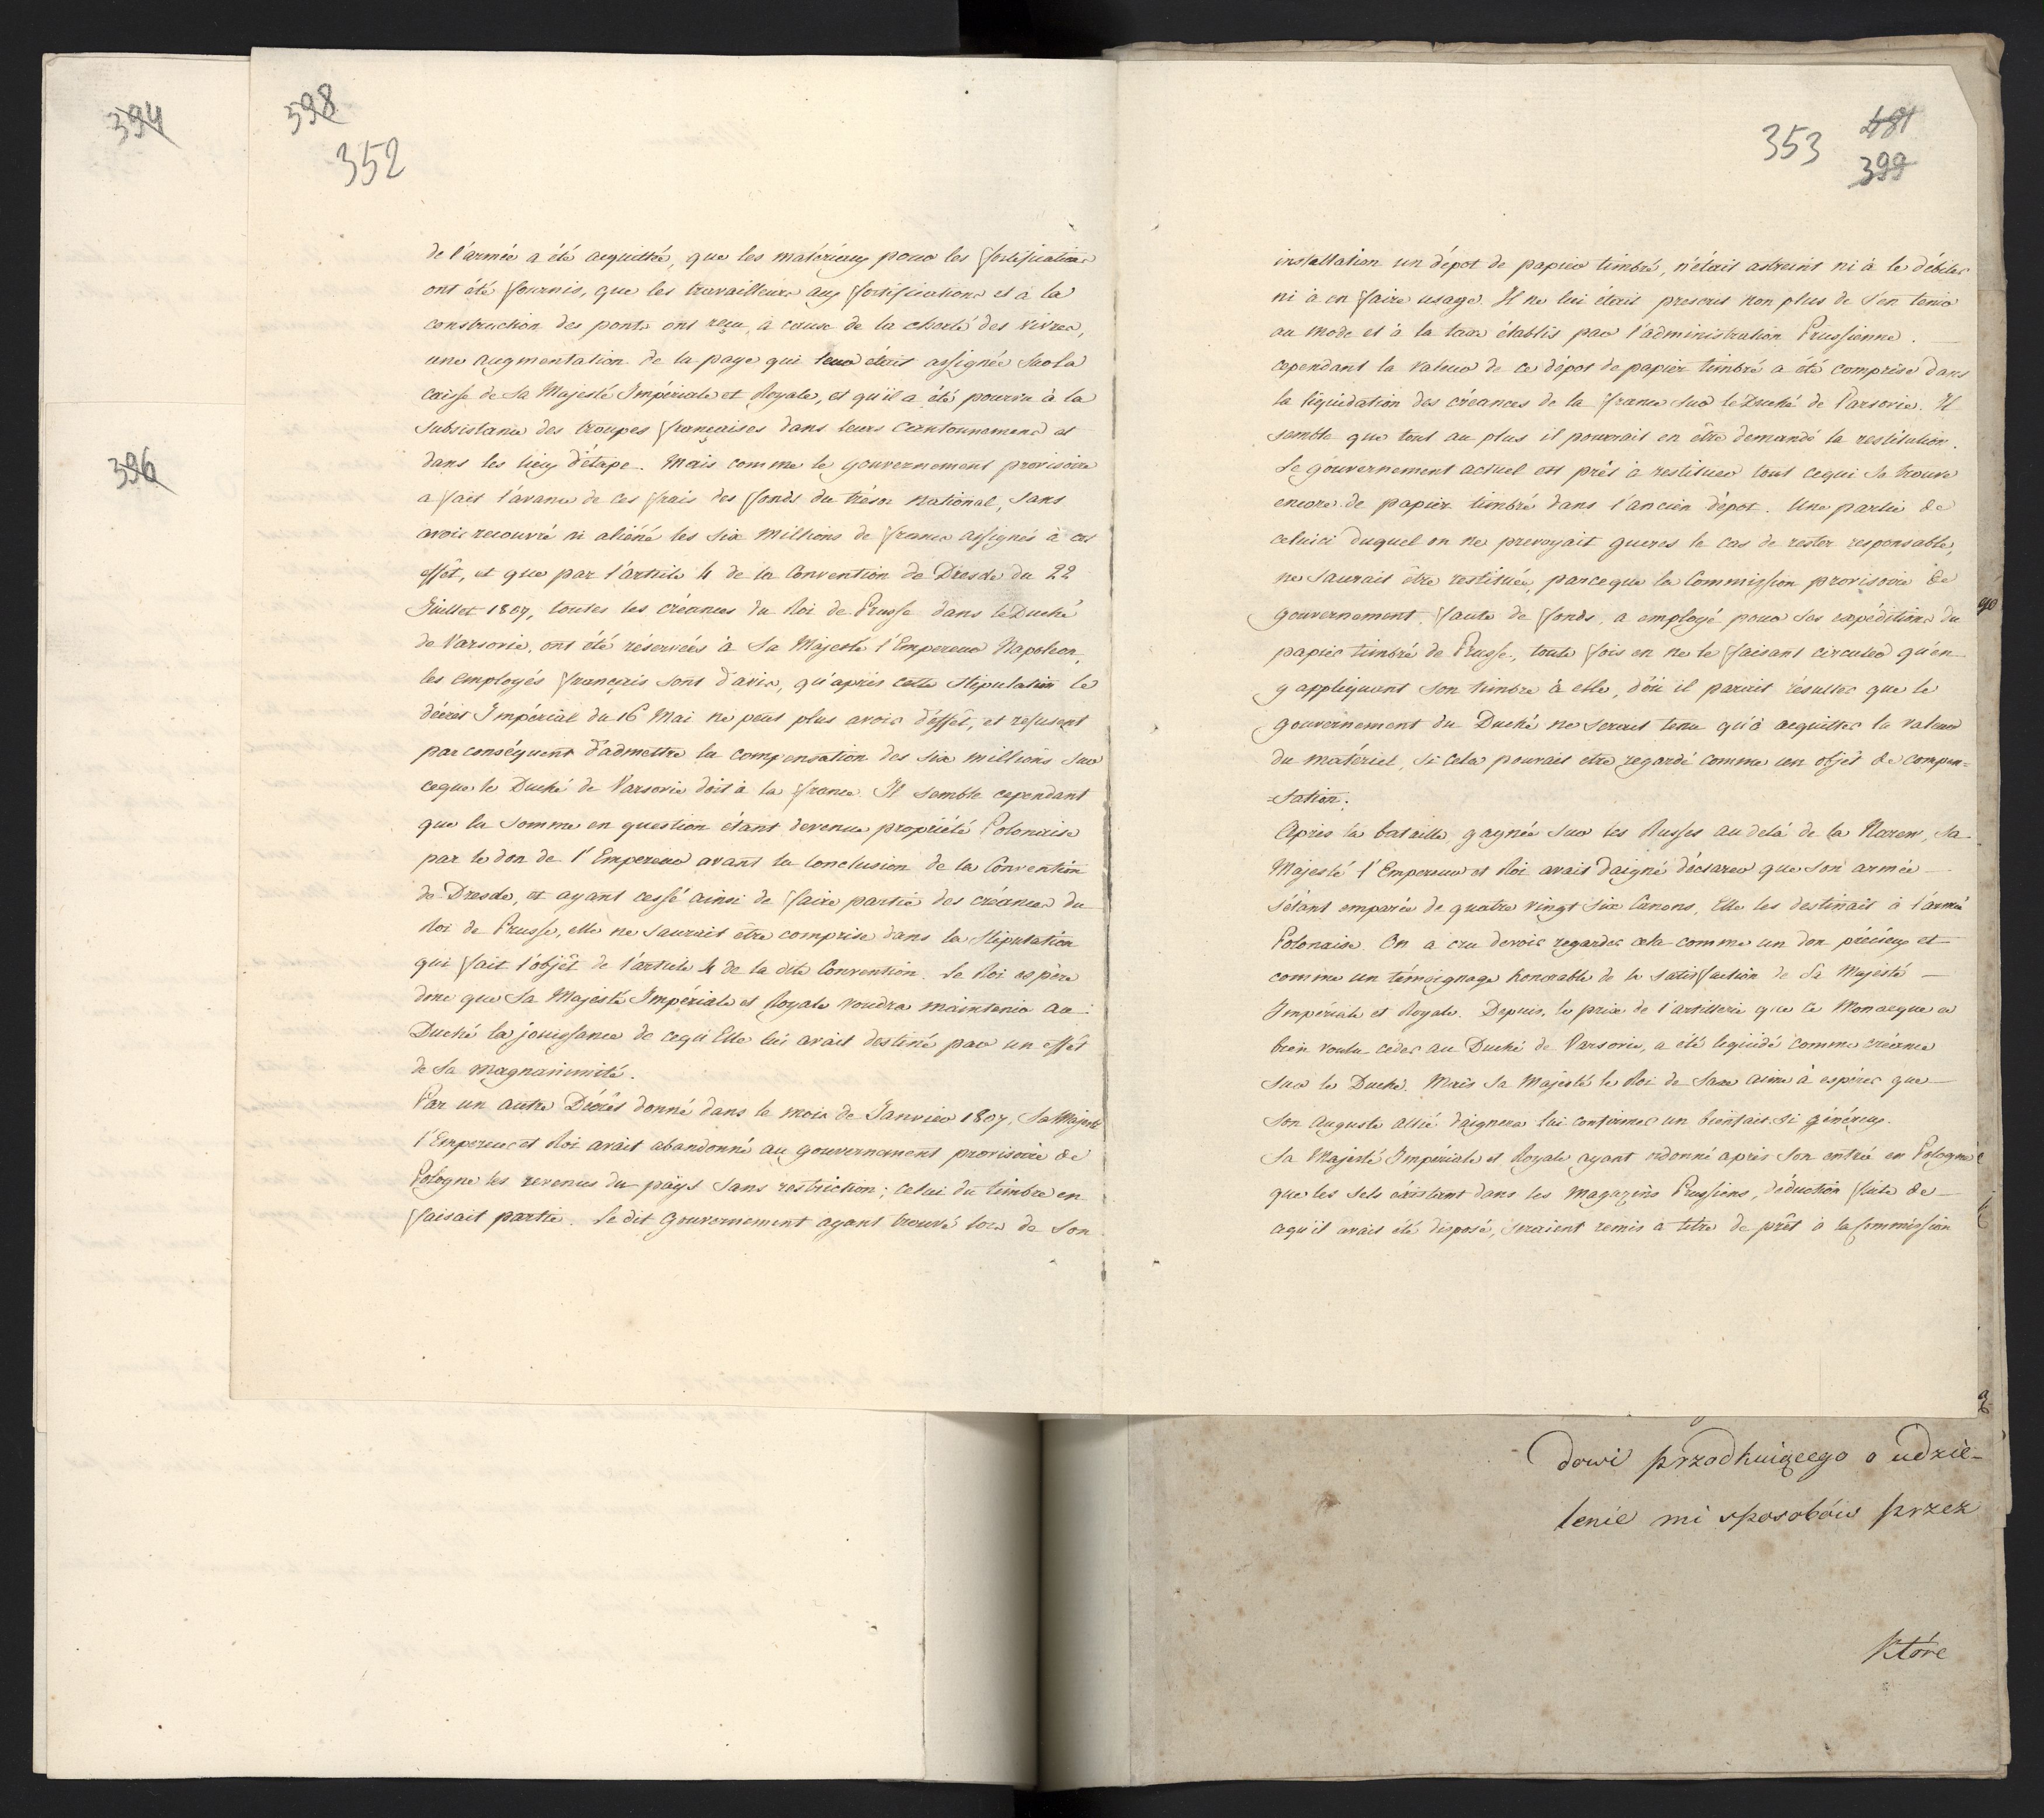 394
396
398
352
de l'armée a été acquittée, que les matériaux pour les fortifications
ont été fournis, que les travailleurs aux fortifications et à la
construction des ponts ont reçu, à cause de la cherté des vivres,
une augmentation de la paye qui leur était assignée sur la
caisse de Sa Majesté Impériale et Royale, et qu'il a été pourvu à la
subsistance des troupes françaises dans leurs cantonnemens et
dans les lieux d'étape. Mais comme le gouvernement provisoire
a fait l'avance de ces frais des fonds du trésor national, sans
avoir recouvré ni aliéné les six millions de francs assignés à cet
effêt, et que par l'article 4 de la Convention de Dresde du 22
Juillet 1807, toutes les créances du Roi de Prusse dans le Duché
de Varsovie, ont été réservées à Sa Majesté l'Empereur Napoleon,
les employés français sont d'avis, qu'après cette stipulation le
décret Impérial du 16 Mai ne peut plus avoir d'éffêt, et refusent
par conséquent d'admettre la compensation des six millions sur
ceque le Duché de Varsovie doit à la france. Il semble cependant
que la somme en question étant devenue propriété Polonaise
par le don de l'Empereur avant la conclusion de la Convention
de Dresde, et ayant cessé ainsi de faire partie des créances du
Roi de Prusse, elle ne saurait être comprise dans la stipulation
qui fait l'objêt de l'article 4 de la dite Convention. Le Roi espère
donc que Sa Majesté Impériale et Royale voudra maintenir au
Duché la jouissance de cequ'Elle lui avait destiné par un effêt
de Sa magnanimité.
Par un autre Décrêt donné dans le mois de Janvier 1807, Sa Majesté
l'Empereur et Roi avait abandonné au gouvernement provisoire de
Pologne les revenus du pays sans restriction; celui du timbre en
faisait partie. Le dit Gouvernement ayant trouvé lors de son
353 481
399
installation un dépot de papier timbré, n'était astreint ni à le débiter
ni à en faire usage. Il ne lui était prescrit non plus de s'en tenir
au mode et à la taxe établis par l'administration Prussienne.
cependant la valeur de ce dépot de papier timbré a été comprise dans
la liquidation des créances de la france sur le Duché de Varsovie. Il
semble que tout au plus il pourrait en être demandé la restitution.
Le gouvernement actuel est prêt à restituer tout cequi se trouve
encore de papier timbré dans l'ancien dépot. Une partie de
celuici duquel on ne prevoyait gueres le cas de rester responsable,
ne saurait être restituée, parceque la Commission provisoire de
gouvernement, faute de fonds, a employé pour ses expéditions du
papier timbré de Prusse, toute fois en ne le faisant circuler qu'en
y appliquant son timbre à elle, d'où il parait résulter que le
gouvernement du Duché ne serait tenu qu'à acquitter la valeur
du matériel, si cela pouvait etre regardé comme un objêt de compen=
=sation.
Après la bataille gagnée sur les Russes au delà de la Narew, Sa
Majesté l'Empereur et Roi avait daigné déclarer que son armée
s'étant emparée de quatre vingt six Canons, Elle les destinait à l'armée
Polonaise. On a cru devoir regarder cela comme un don précieux et
comme un témoignage honorable de la satisfaction de Sa Majesté
Impériale et Royale. Depuis, le prix de l'artillerie que ce Monarque a
bien voulu céder au Duché de Varsovie, a été liquidé comme créance
sur le Duché. Mais Sa Majesté le Roi de Saxe aime à espérer que
Son auguste allié daignera lui confirmer un bienfait si généreux.
Sa Majesté Impériale et Royale ayant ordonné après Son entrée en Pologne
que les sels éxistant dans les magazins Prussiens, déduction faite de
cequ'il avait été disposé, seraient remis à titre de prêt à la Commission
go
dowi przodkuiącego o udzie-
lenie mi sposobów przez
które